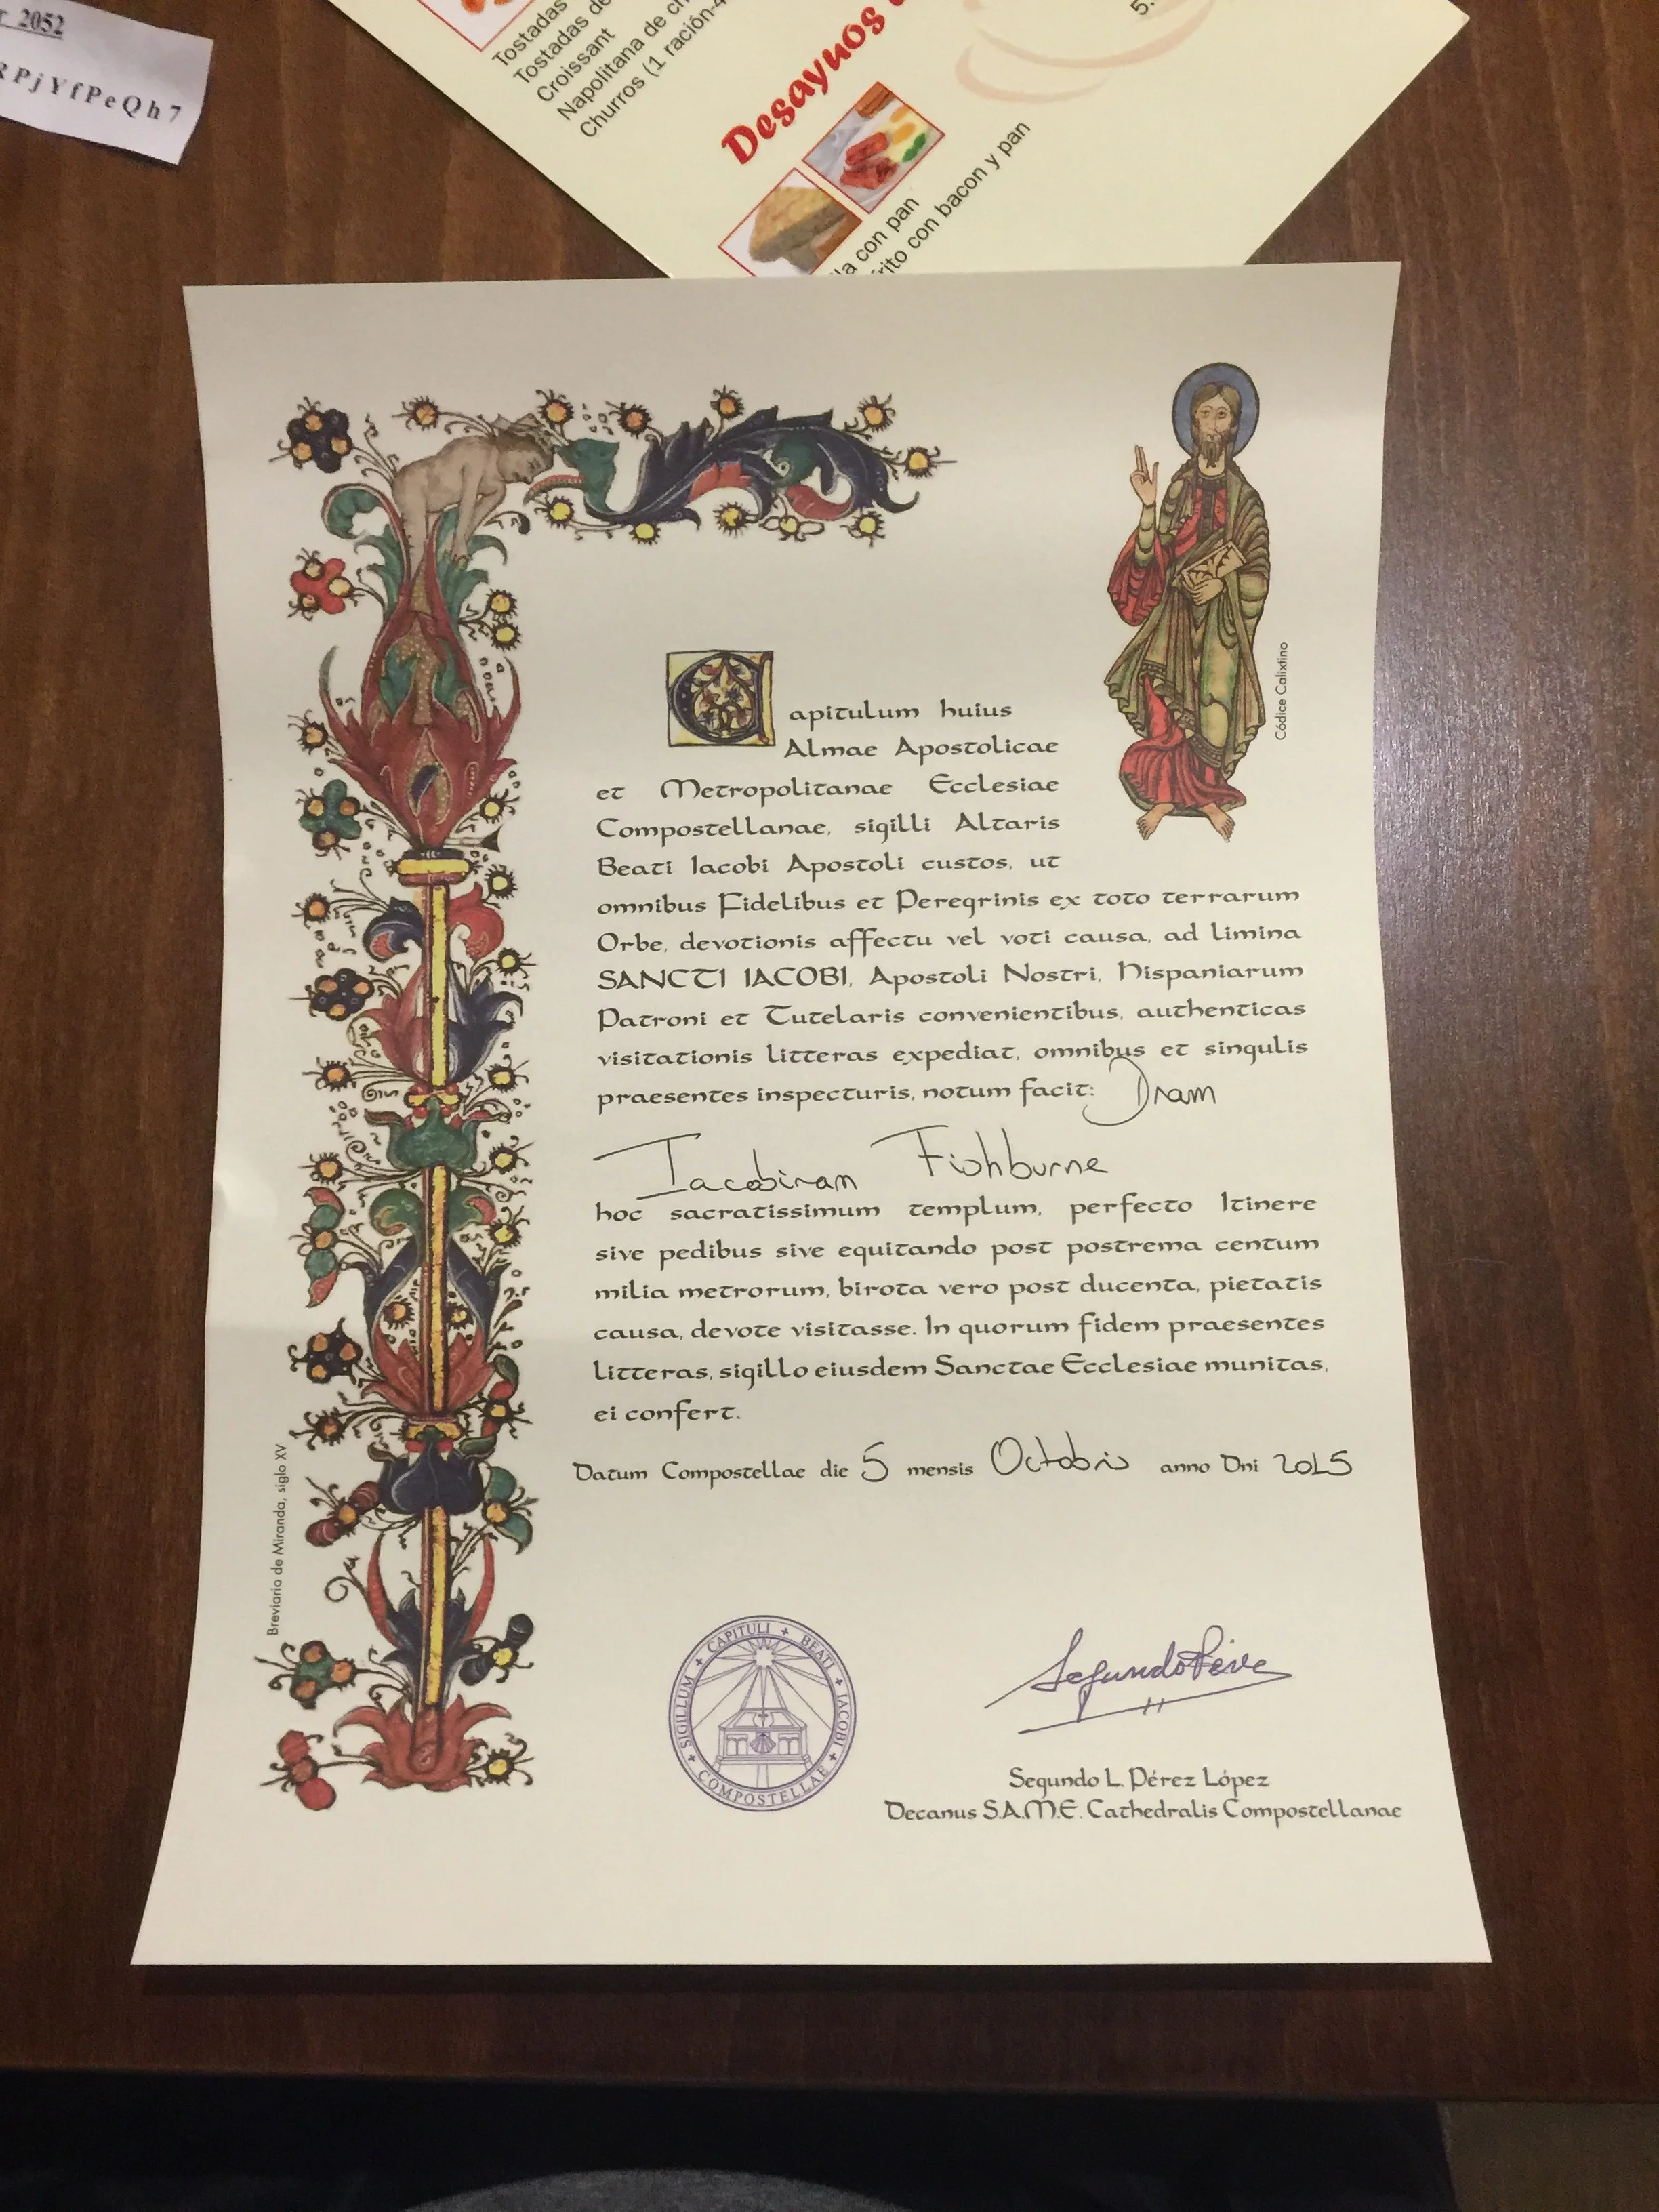 r 2052
RPjYfPeQh7
Tostadas
Tostadas de
Croissant
Napolitana de ch
Churros (1 ración-4
Desayunos
5.
la con pan
rito con bacon y pan
Códice Calixtino
Capitulum huius
Almae Apostolicae
et Metropolitanae Ecclesiae
Compostellanae, sigilli Altaris
Beati Iacobi Apostoli custos, ut
omnibus Fidelibus et Peregrinis ex toto terrarum
Orbe, devotionis affectu vel voti causa, ad limina
SANCTI IACOBI, Apostoli Nostri, Hispaniarum
Patroni et Tutelaris convenientibus, authenticas
visitationis litteras expediat, omnibus et singulis
praesentes inspecturis, notum facit: Dnam
Iacobinam Fishburne
hoc sacratissimum templum, perfecto Itinere
sive pedibus sive equitando post postrema centum
milia metrorum, birota vero post ducenta, pietatis
causa, devote visitasse. In quorum fidem praesentes
litteras, sigillo eiusdem Sanctae Ecclesiae munitas,
ei confert.
Datum Compostellae die 5 mensis Octobris anno Dni 2015
Breviario de Miranda, siglo XV
SIGILLUM + CAPITULI + BEATI + IACOBI + COMPOSTELLAE +
Segundo Pérez
Segundo L. Pérez López
Decanus S.A.M.E. Cathedralis Compostellanae